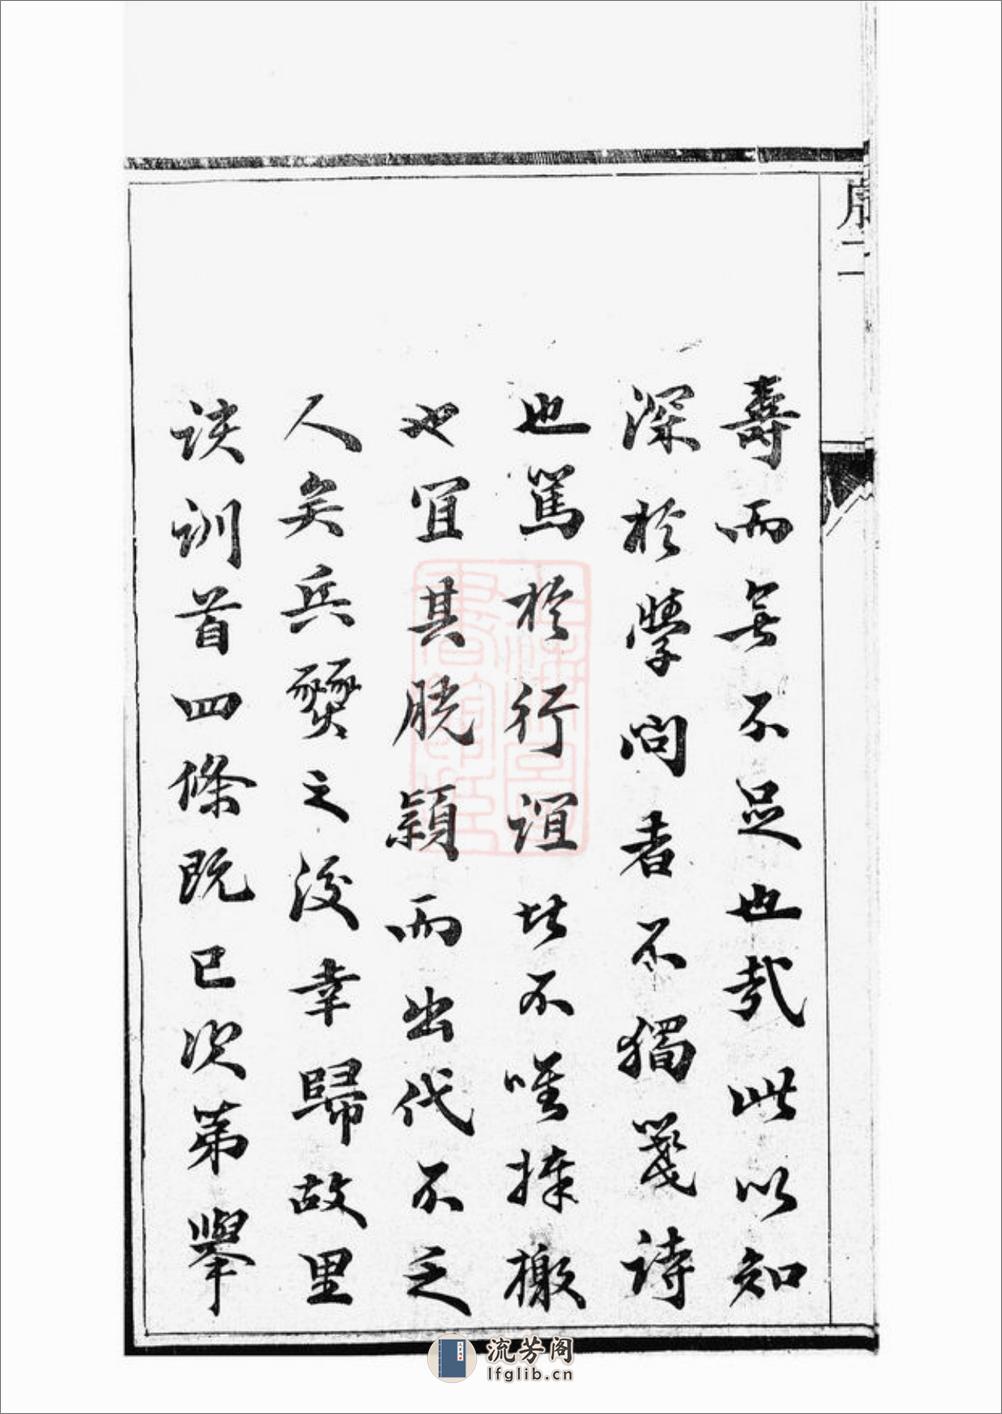 序 二
壽而無不足也哉此以知
深於學問者不獨箋詩
也篤於行誼者不唯捧檄
也宜其脫穎而出代不乏
人矣兵燹之後幸歸故里
族訓首四條既已次第舉
流芳阁
lfglib.cn